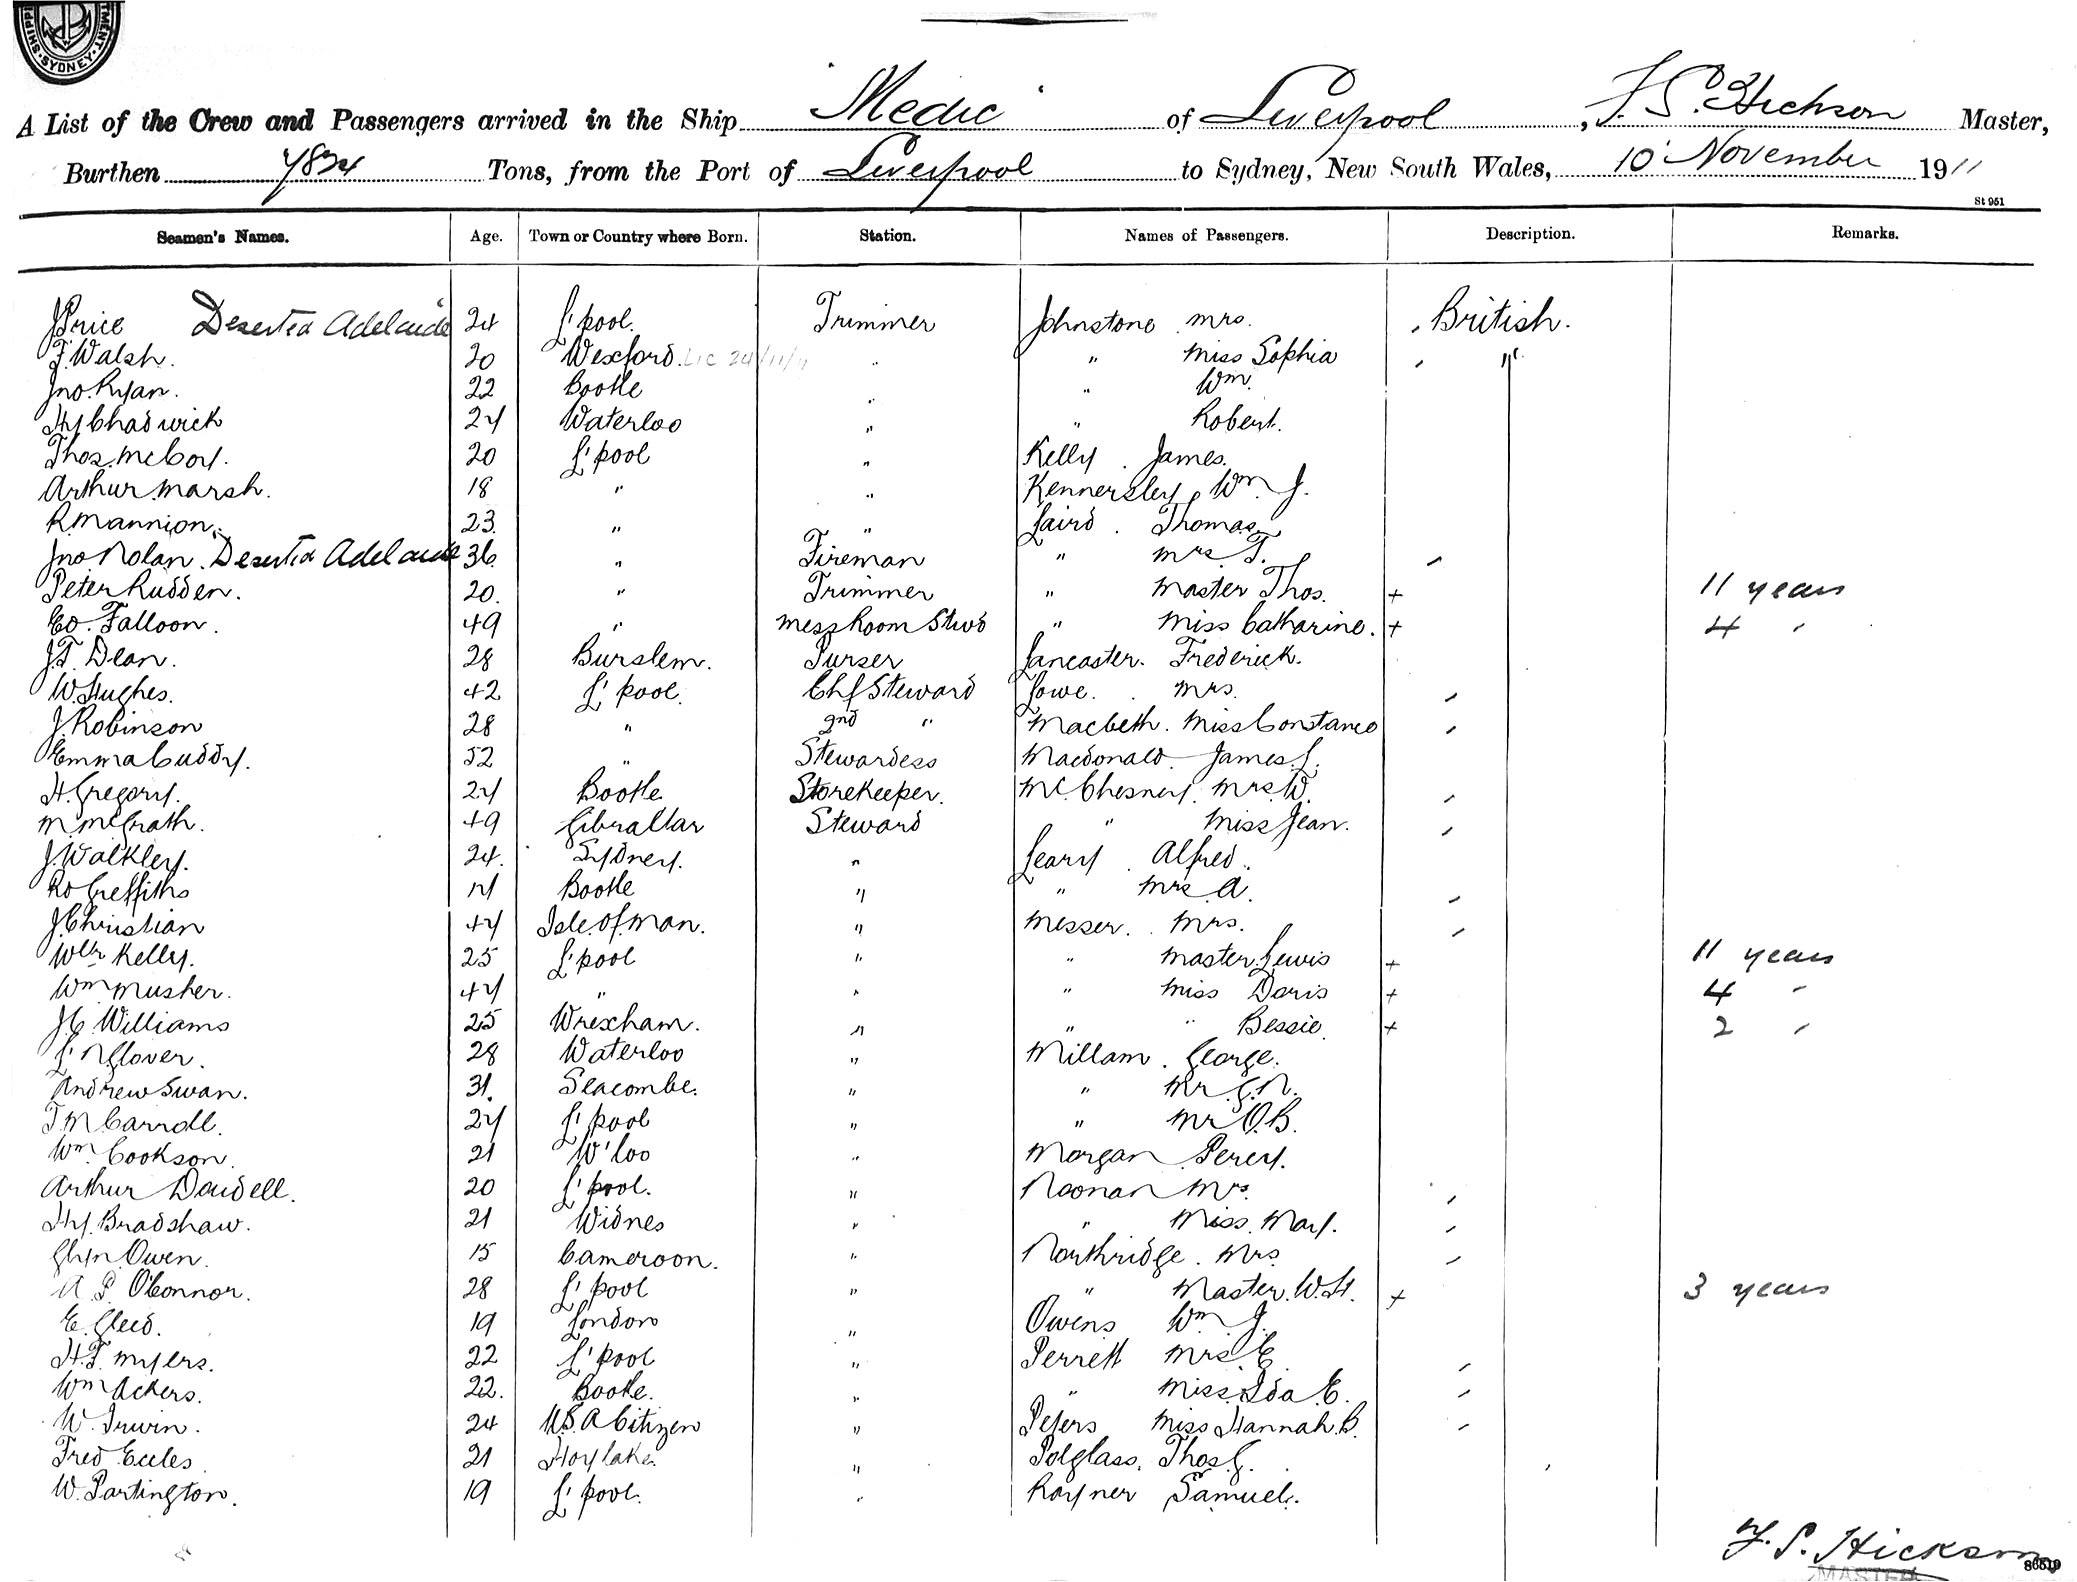 SHIPPI TMENT. SYDNEY
A List of the Crew and Passengers arrived in the Ship "Medic" of Liverpool, F. P. Hickson Master,
Burthen 7834 Tons, from the Port of Liverpool to Sydney, New South Wales, 10 November 1911
St 951
Seamen's Names. Age. Town or Country where Born. Station. Names of Passengers. Description. Remarks.
J Price Deserted Adelaide 24 L'pool. Trimmer Johnstone mrs. British.
F. Walsh. 20 Wexford. Lic 24/11/11 " " Miss Sophia "
Jno. Ryan. 22 Bootle " " Wm.
Hy Chadwick 24 Waterloo " " Robert.
Thos. McCoy. 20 L'pool " Kelly. James.
Arthur Marsh. 18 " " Kennersley, Wm J.
R Mannion. 23 " " Laird. Thomas.
Jno Nolan. Deserted Adelaide 36 " Fireman " mrs T.
Peter Rudden. 20. " Trimmer " Master Thos. + 11 years
Ed. Falloon. 49 " Mess Room Stwd " Miss Catharine. + 4 "
J.T. Dean. 28 Burslem. Purser Lancaster. Frederick.
W. Hughes. 42 L'pool. Chf Steward Lowe. mrs.
J. Robinson 28 " 2nd " Macbeth. Miss Constance
Emma Cuddy. 52 " Stewardess Macdonald James L.
H. Gregory. 24 Bootle Storekeeper. McChesney. Mrs. W.
M. McGrath. 49 Gibraltar Steward " Miss Jean.
J. Walkley. 24. Sydney. " Leary. Alfred.
Rd Greffiths Bootle " " Mrs A.
J. Christian 44 Isle of Man. " Messer. Mrs.
Kelly. 25 L'pool " " Master Lewis + 11 years
Wm Musher. 44 " " " Miss Doris + 4 "
J C. Williams 25 Wrexham. " " " Bessie. + 2 "
Glover. 28 Waterloo " Millam. George.
Andrew Swan. 31. Seacombe. " " Mr G.N.
T M Carroll. 24 L'pool " " Mr O.B.
Wm. Cookson. 21 W'loo " Morgan Percy.
Arthur Dowdell. 20 L'pool. " Noonan Mrs.
Hy. Bradshaw. 21 Widnes " " Miss. Mary.
Glyn Owen. 15 Cameroon. " Northridge. Mrs.
A. P. O'Connor. 28 L'pool " " Master. W.H. + 3 years
E. Gleed. 19 London " Owens Wm J.
H.T. Myers. 22 L'pool " Perrett Mrs E
Wm Ackers. 22. Bootle. " " Miss. Ida E.
W. Irwin. 24 U.S.A Citizen " Peters Miss Hannah. B.
Fred Eccles 21 Hoylake. " Polglass, Thos. G.
W. Partington. 19 L'pool. " Rayner Samuel.
F. P. Hickson
MASTER